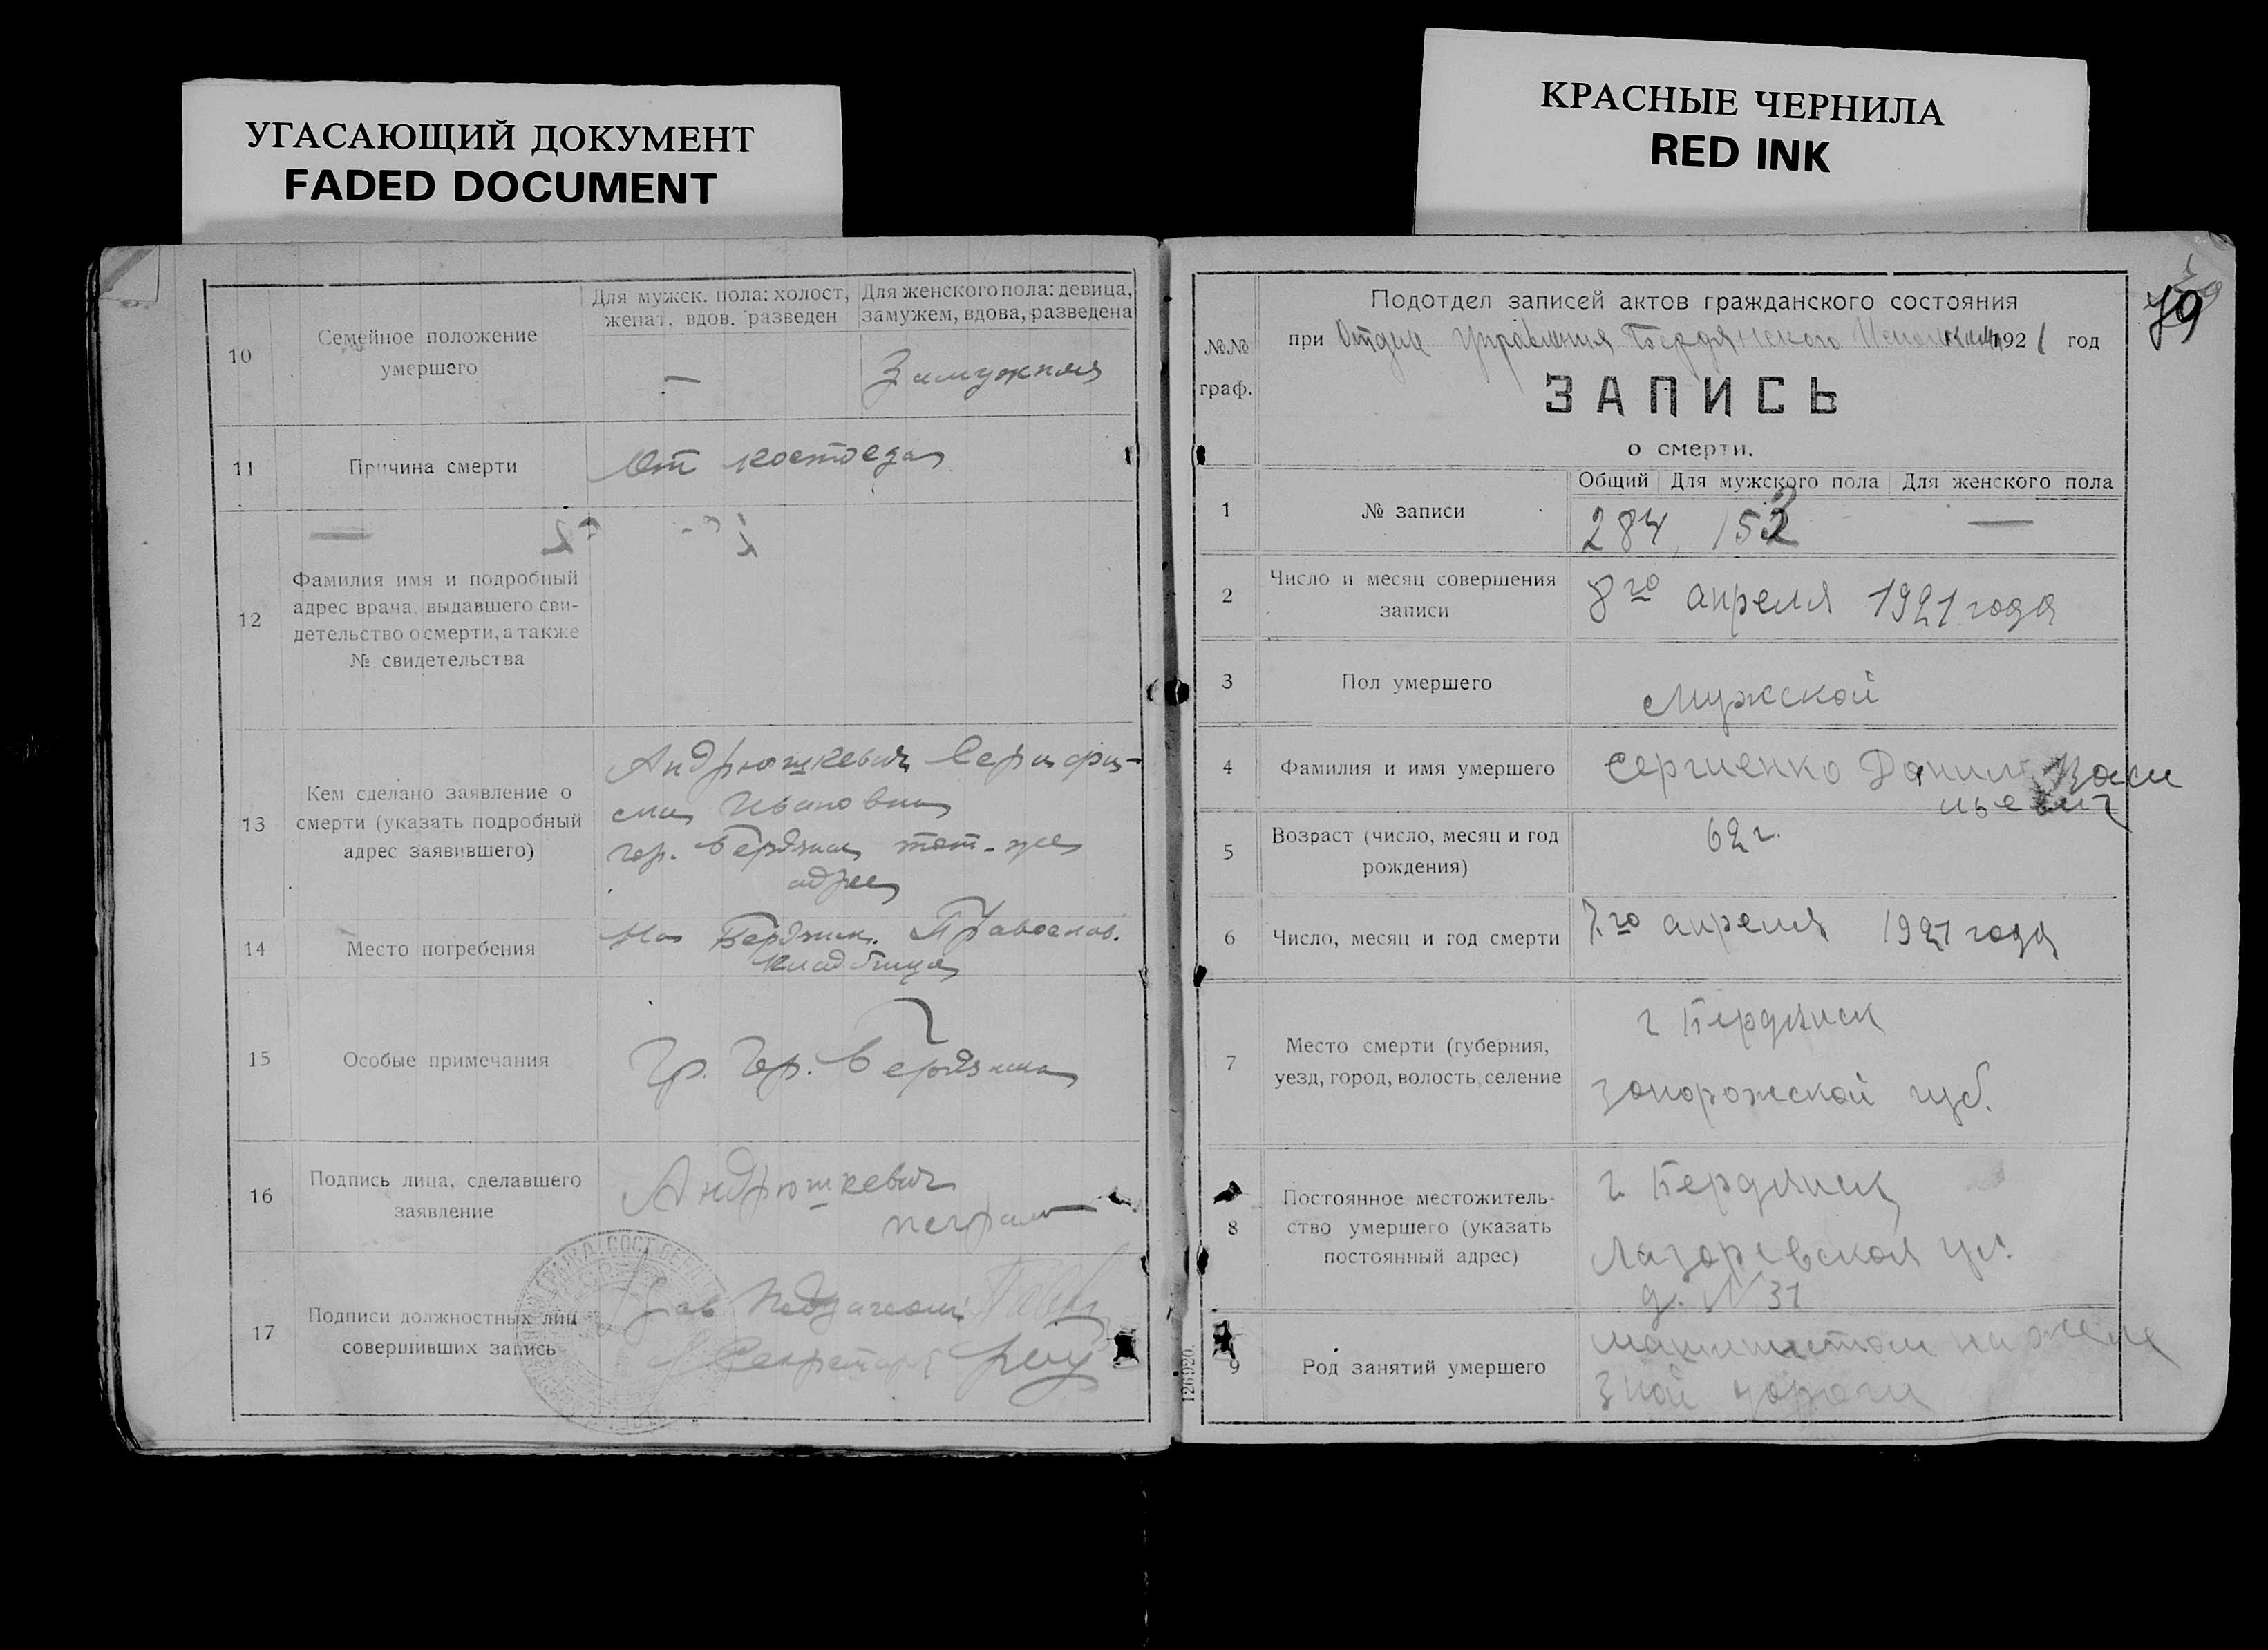 УГАСАЮЩИЙ ДОКУМЕНТ
FADED DOCUMENT
КРАСНЫЕ ЧЕРНИЛА
RED INK
10
Семейное положение
умершего
Для мужск. пола: холост,
женат. вдов. разведен
Для женского пола: девица,
замужем, вдова, разведена
—
Замужняя
11
Причина смерти
От костоеда
12
Фамилия имя и подробный
адрес врача, выдавшего сви-
детельство о смерти, а также
№ свидетельства
13
Кем сделано заявление о
смерти (указать подробный
адрес заявившего)
Андрюшкевич Серафи-
ма Ивановна
гор. Бердянск тот-же
адрес
14
Место погребения
На Бердянск. Православ.
кладбище
15
Особые примечания
Гр. Гор. Бердянска
16
Подпись лица, сделавшего
заявление
Андрюшкевич
неграм
17
Подписи должностных лиц
совершивших запись
Зав
Секретарь
79
№№
граф.
Подотдел записей актов гражданского состояния
при Отделе Управления Бердянского Исполкома 1921 год
ЗАПИСЬ
о смерти.
1
№ записи
Общий Для мужского пола Для женского пола
284 153 —
2
Число и месяц совершения
записи
8го апреля 1921 года
3
Пол умершего
Мужской
4
Фамилия и имя умершего
Сергиенко Данил Васи
льевич
5
Возраст (число, месяц и год
рождения)
62 г.
6
Число, месяц и год смерти
7го апреля 1921 года
7
Место смерти (губерния,
уезд, город, волость, селение
г Бердянск
Запорожской губ.
8
Постоянное местожитель-
ство умершего (указать
постоянный адрес)
г. Бердянск
Лазоревская ул.
д. № 31
9
Род занятий умершего
машинистом на желе
зной дороги
126920.